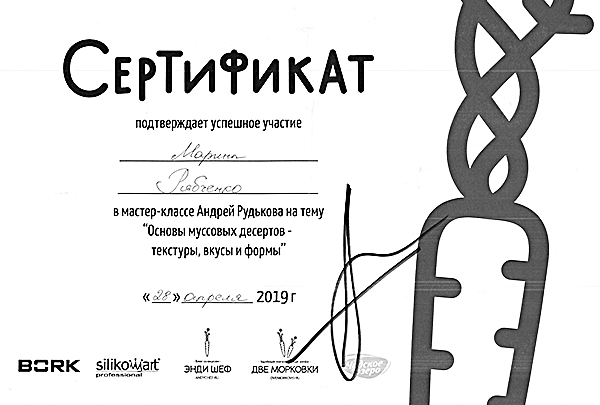 Сертификат
подтверждает успешное участие
Марина
Рябченко
в мастер-классе Андрей Рудькова на тему
"Основы муссовых десертов -
текстуры, вкусы и формы"
«28» апреля 2019 г
BORK
silikomart
professional
ЭНДИ ШЕФ
ДВЕ МОРКОВКИ